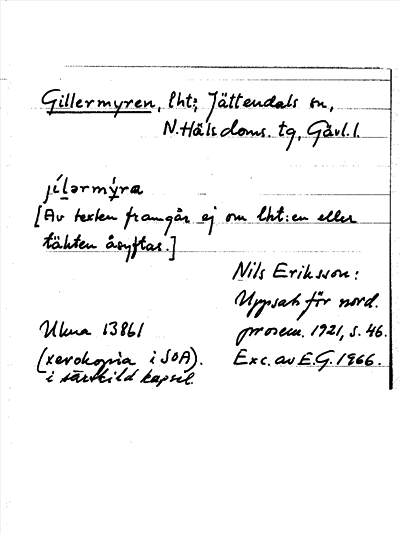 Gillermyren, lht; Jättendals sn,
N. Häls doms. tg, Gävl. l.
jı́l̲ərmý̲ra
[Av texten framgår ej om lht:en eller
täkten åsyftas.]
Nils Eriksson:
Uppsats för nord.
prosem. 1921, s. 46.
Exc. av E.G. 1966.
Ulma 13861
(xerokopia i SOA).
i särskild kapsel.